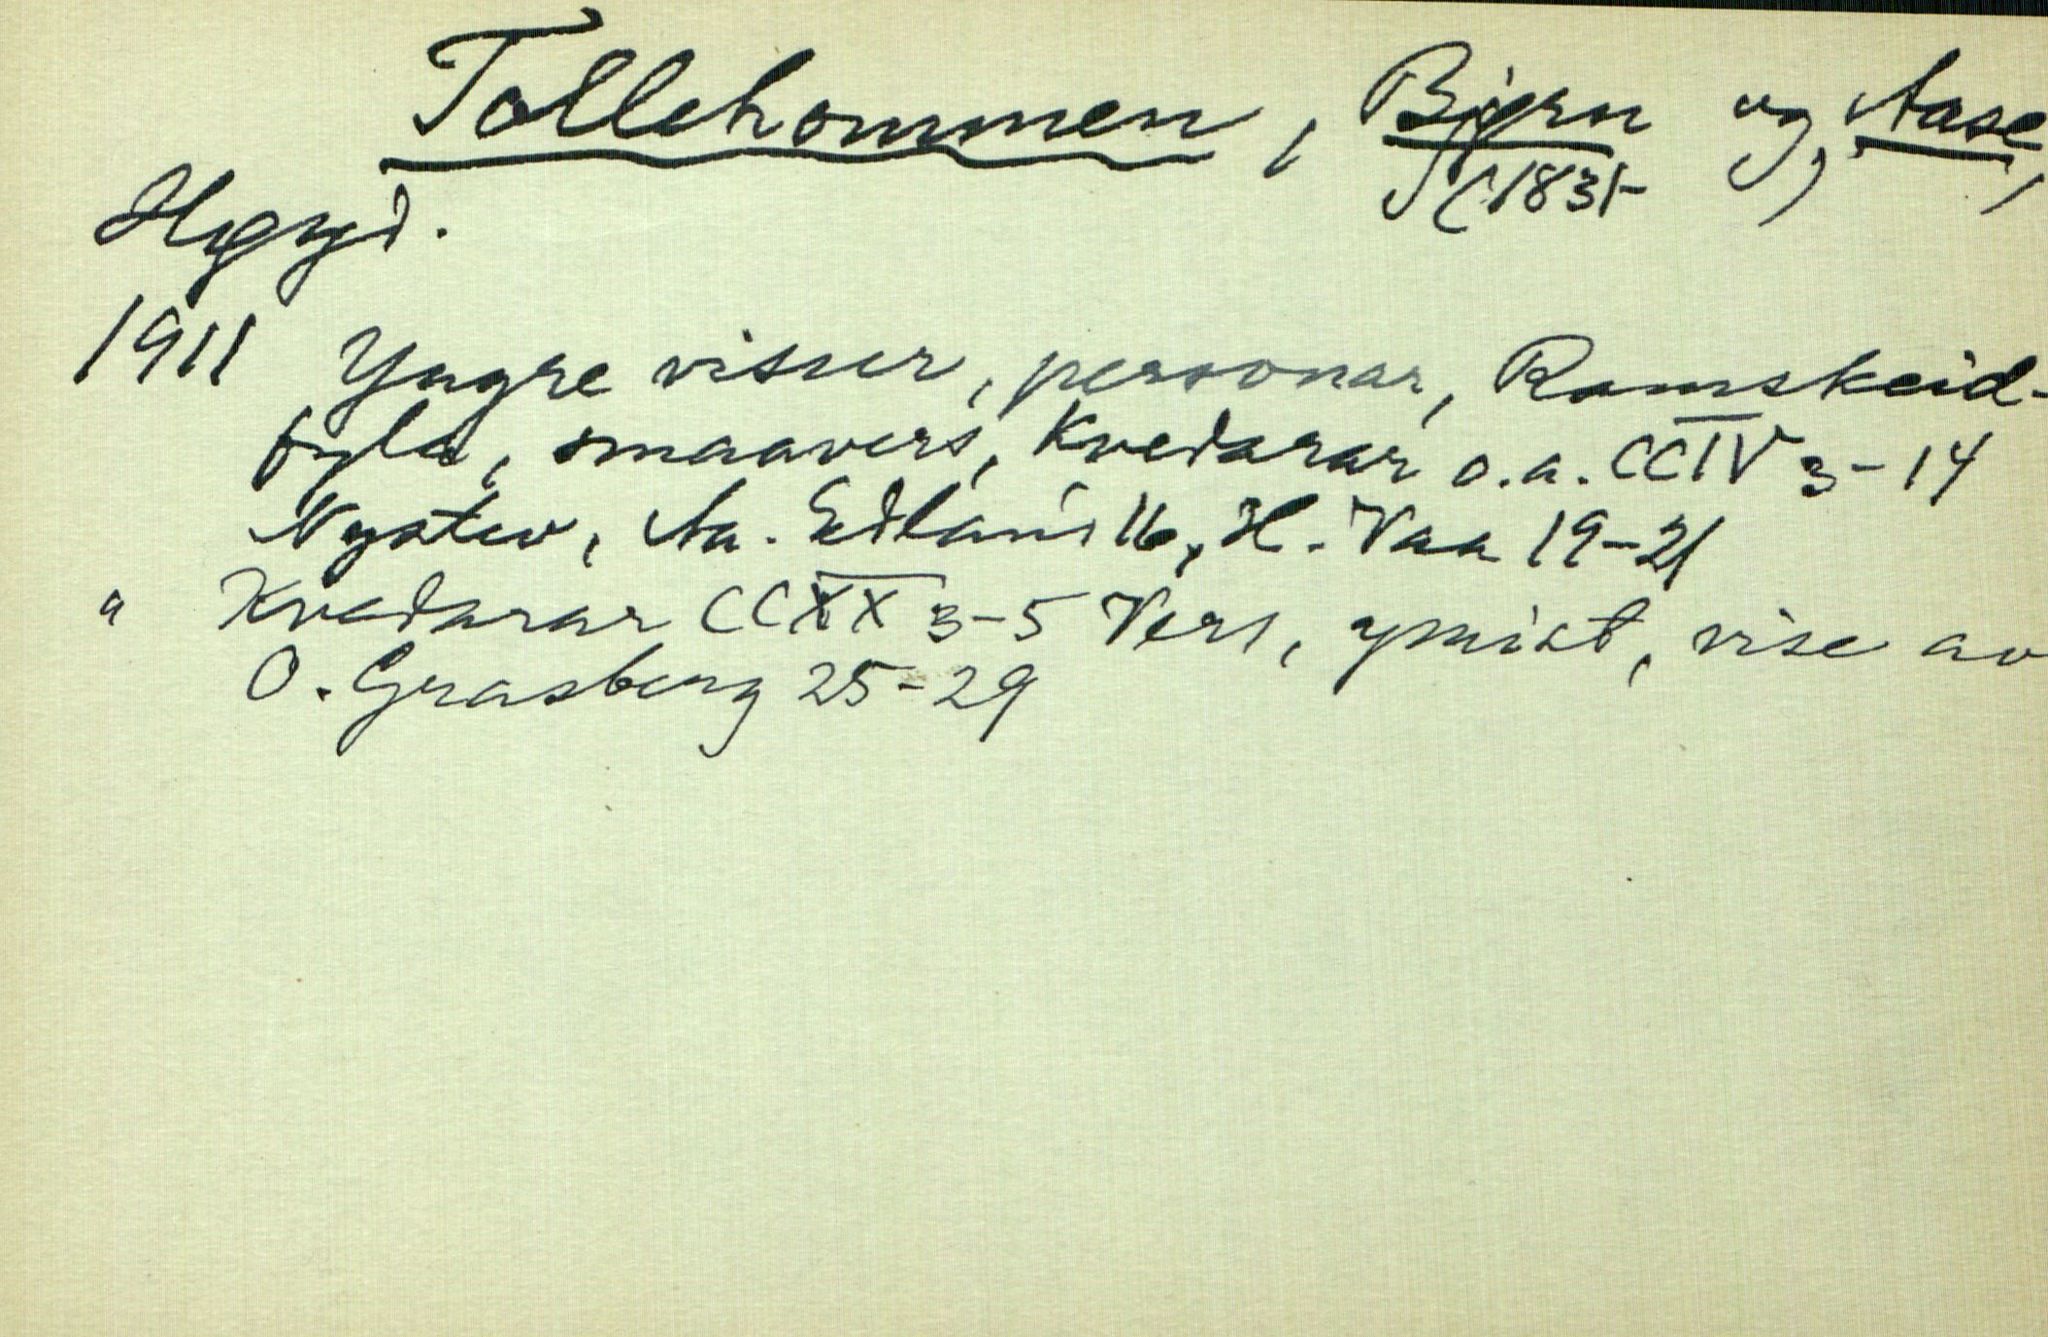 Tollehommen, Bjørn og Aase,
(1835- )
Høyd.
1911 Yngre visur, personar, Ramskeid-
fyla, smaavers, Kvedarar o.a. CCIV 3-14
Nystev, Aa. Edland 16, H. Vaa 19-21
" Kvedarar CCXX 3-5 Vers, ymist, vise av
O. Grasberg 25-29